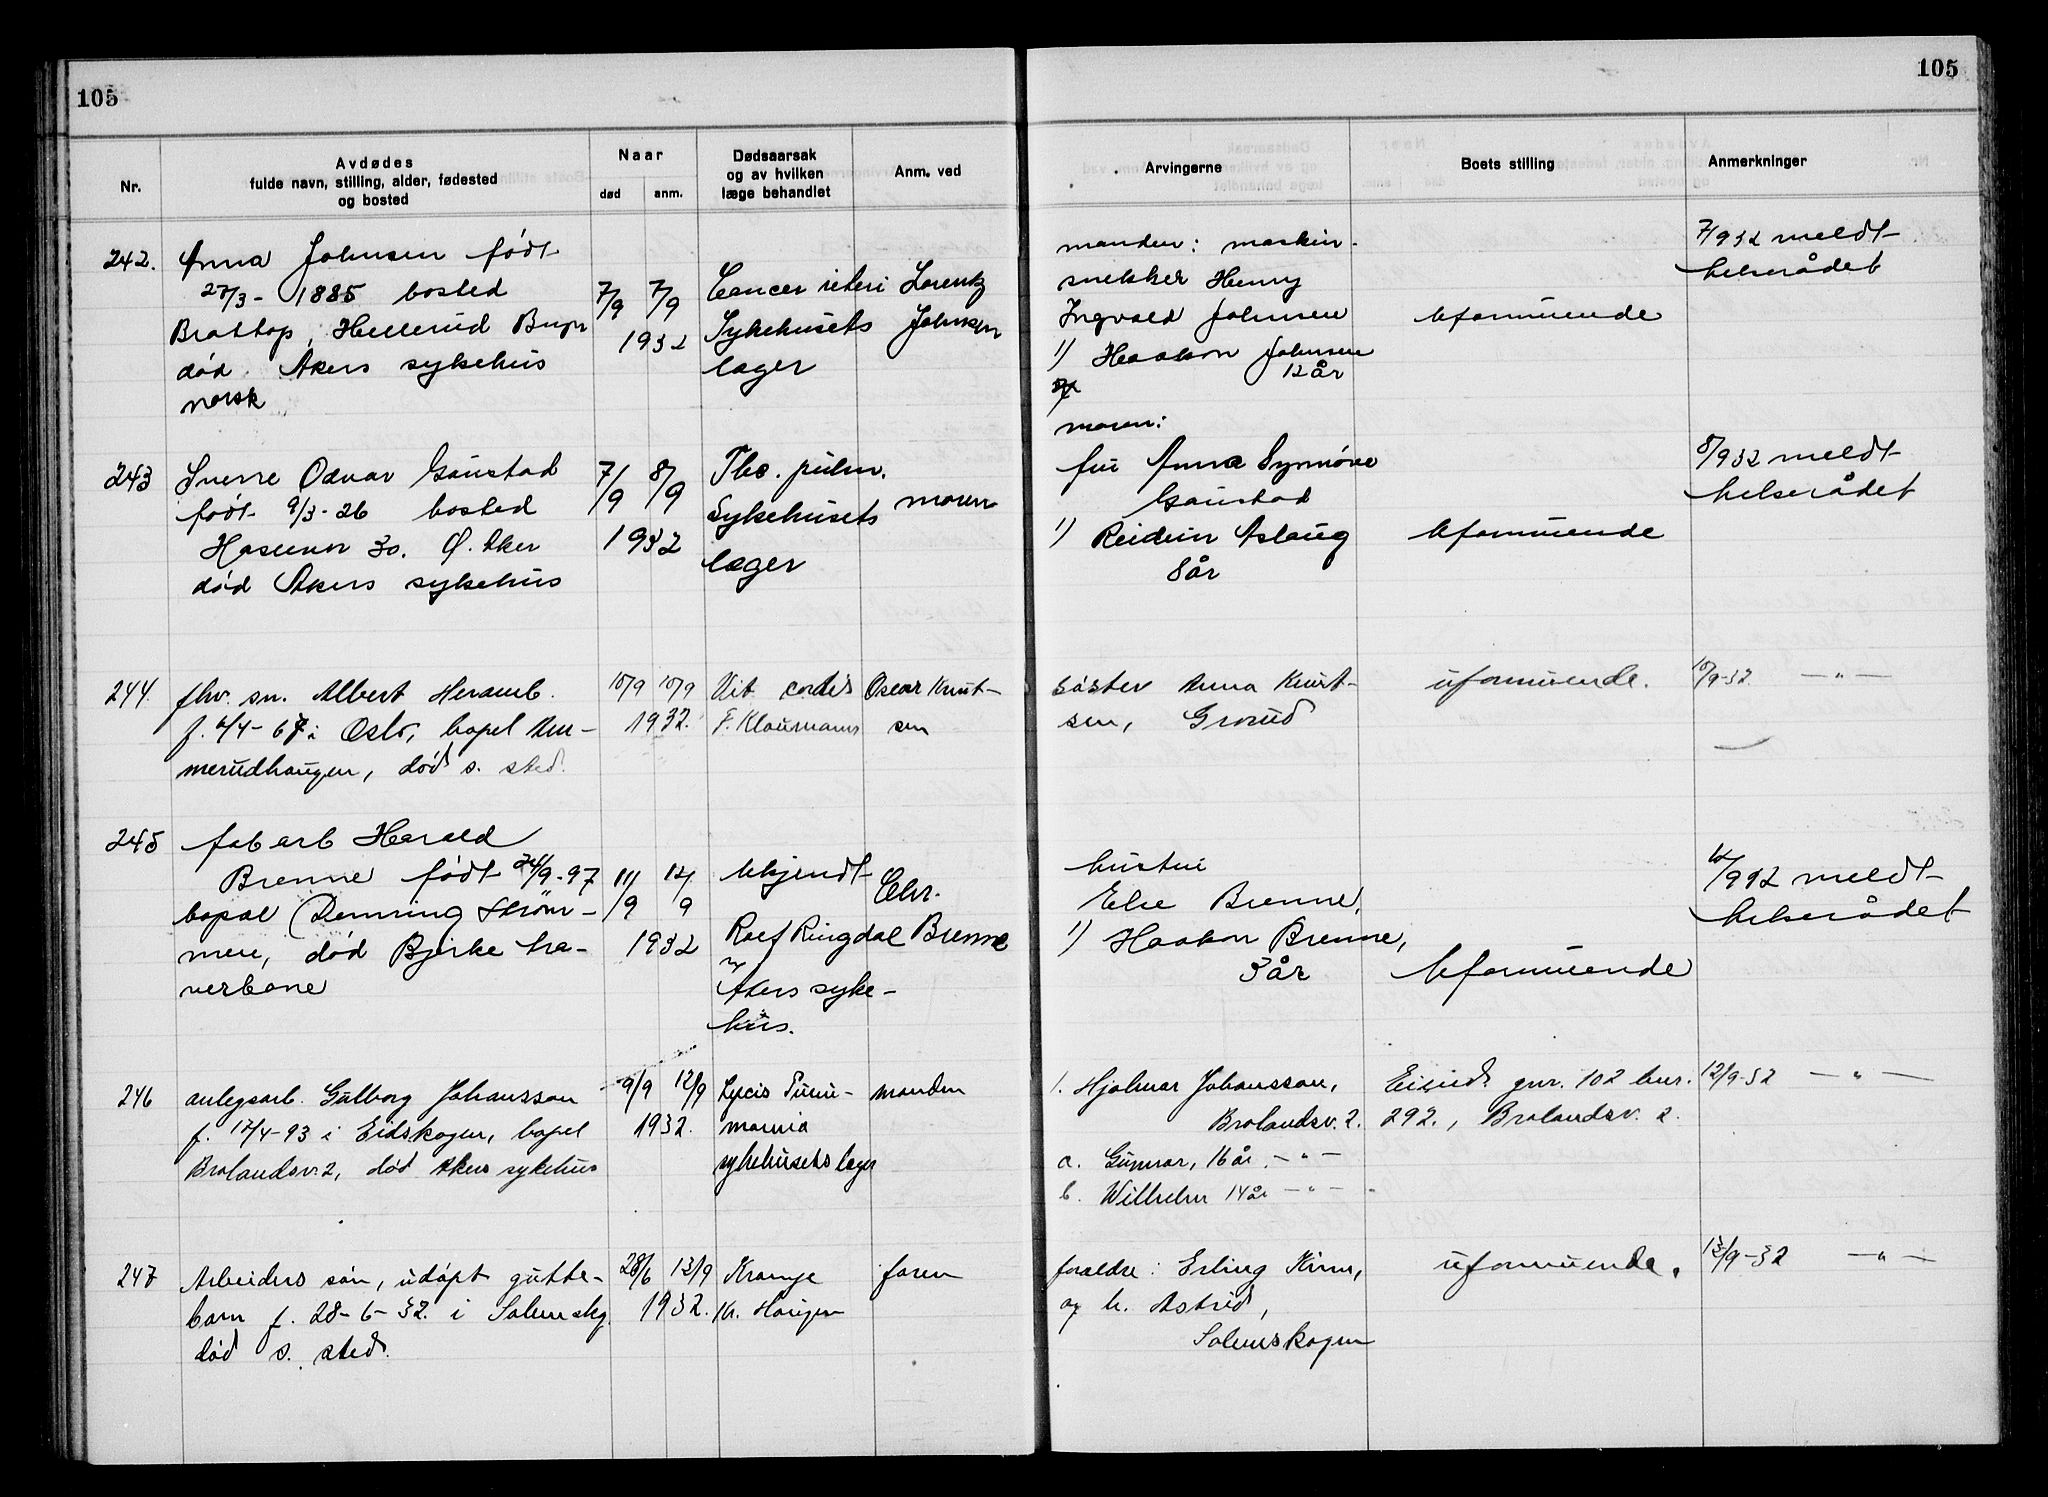 105
105
Nr.
Avdødes
fulde navn, stilling, alder, fødested
og bosted
Naar
død
anm.
Dødsaarsak
og av hvilken
læge behandlet
Anm. ved
Arvingerne
Boets stilling
Anmerkninger
242.
Anna Johnsen født
27/3 - 1885 bosted
Brattop, Hellerud
død Akers sykehus
norsk
7/9 7/9
1932
Cancer uteri
Sykehusets
læger
Lorentz
Johnsen
manden: maskin-
snekker Henry
Ingvald Johnsen
1) Haakon Johnsen
12 år
Uformuende
7/932 meldt
helserådet
243
Sverre Odvar Gaustad
født 9/3-26 bosted
30. Ø. Aker
død Akers sykehus
7/9 8/9
1932
Tbc. pulm.
Sykehusets
læger
moren
moren:
fru Anna Synnøve
Gaustad
1) Reidun Aslaug
8 år
Uformuende
8/932 meldt
helserådet
244.
fhv. sn. Albert Heramb.
f. 6/4-67 i Oslo, bopel Am-
merudhaugen, død s. sted.
10/9 10/9
1932.
Vit. cordis
F. Klaumann
Oscar Knut-
sen
søster Anna Knut-
sen, Grorud
uformuende.
10/9-32 — " —
245
fab arb Harald
Brenne født 24/9-97
bopæl Strøm-
men, død Bjerke tra-
verbane
11/9 12/9
1932
Ukjendt
Rolf Ringdal
v/
Akers syke-
hus.
Chr.
Brenne
hustru
Else Brenne,
1) Haakon Brenne,
3 år
Uformuende
12/932 meldt
helserådet
246
anlegsarb. Gulborg Johansson
f. 17/4-93 i Eidskogen, bopel
Brolandsv. 2, død Akers sykehus
9/9 12/9
1932.
sykehusets læger
manden
1. Hjalmar Johansson,
Brolandsv. 2.
a. Gunnar, 16 år. — " —
b. Wilhelm 14 år — " —
Eiend. gnr. 102 bnr.
292., Brolandsv. 2.
12/9-32 — " —
247
Arbeiders søn, udøpt gutte-
barn f. 28-6-32. i Solemskg.
død s. sted.
28/6 12/9
1932.
Krampe
Kr. Haugen
faren
foreldre: Erling Kinn,
og h. Astrid,
Solemskogen
uformuende.
12/9-32 — " —